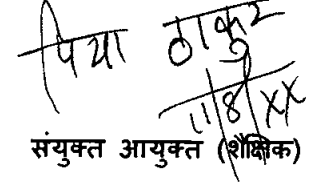 पिया ठाकुर
11/8/XX
संयुक्त आयुक्त (शैक्षिक)